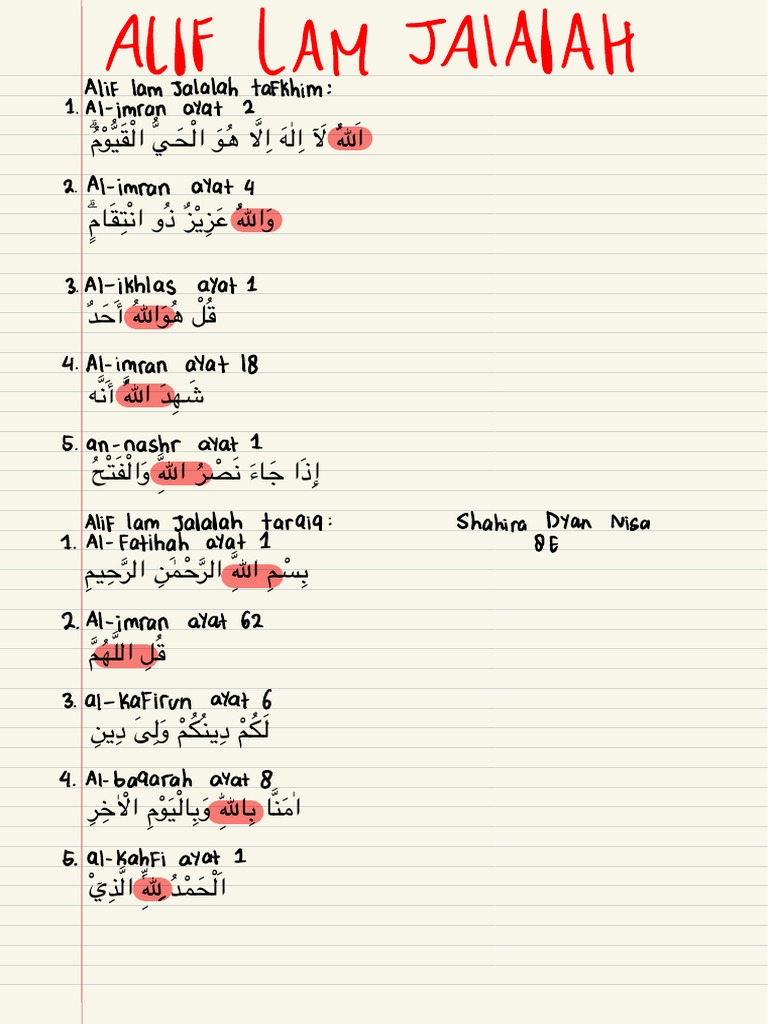 ALIF LAM JALALAH
Alif lam Jalalah tafkhim:
1. Al-imran ayat 2
اَللهُ لَآ اِلٰهَ اِلَّا هُوَ الْحَيُّ الْقَيُّوْمُۗ
2. Al-imran ayat 4
وَاللهُ عَزِيْزٌ ذُو انْتِقَامٍۗ
3. Al-ikhlas ayat 1
قُلْ هُوَاللهُ أَحَدٌ
4. Al-imran ayat 18
شَهِدَ اللهُ أَنَّه
5. an-nashr ayat 1
إِذَا جَاءَ نَصْرُ اللهَِّ وَالْفَتْحُ
Alif lam Jalalah tarqiq:
Shahira Dyan Nisa
8E
1. Al-Fatihah ayat 1
بِسْمِ اللهَِّ الرَّحْمٰنِ الرَّحِيمِ
2. Al-imran ayat 62
قُلِ اللَّهُمَّ
3. al-kafirun ayat 6
لَكُمْ دِينُكُمْ وَلِىَ دِينِ
4. Al-baqarah ayat 8
اٰمَنَّا بِاللهِ وَبِالْيَوْمِ الْاٰخِرِ
5. al-kahfi ayat 1
اَلْحَمْدُ لِلهَِّ الَّذِيْ